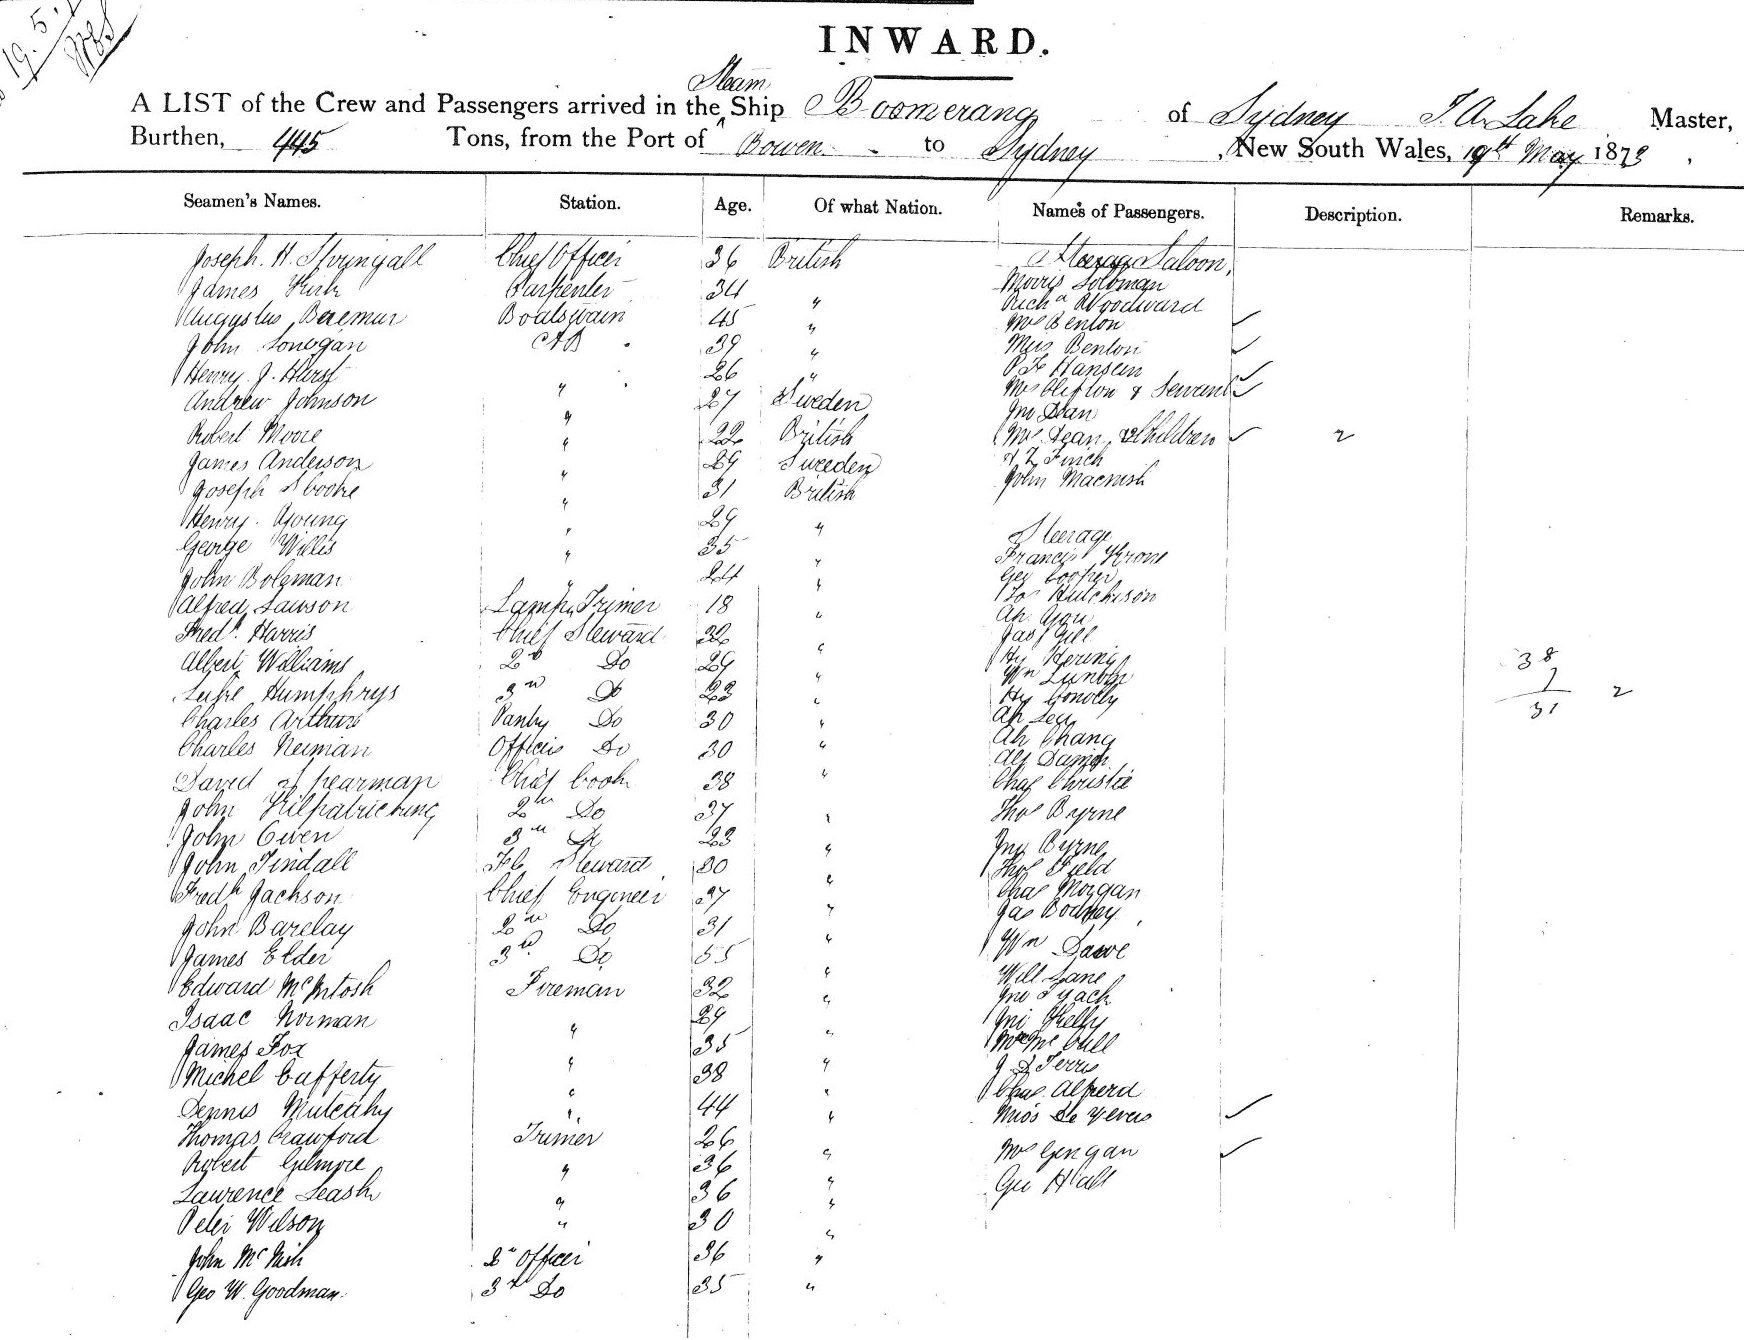 19.5.
INWARD.
Steam
A LIST of the Crew and Passengers arrived in the Ship Boomerang of Sydney J. A. Lake Master,
Burthen, 445 Tons, from the Port of Bowen to Sydney, New South Wales, 19th May 1873,
Seamen's Names. Station. Age. Of what Nation. Names of Passengers. Description. Remarks.
Joseph. H. Chief Officer 36 British Saloon,
James Kirk Carpenter 34 " Morris Soloman
Augustus Boatswain 45 " Richd Woodward
John Lonogan AB 39 " Mrs Benton
Henry. J. Hurst " 26 " Miss Benton
Andrew Johnson " 27 Sweden Hansen
Robert Moore " 22 British Mrs Clifton & Servant
James Anderson " 29 Sweden Jno Dean
Joseph 31 British Mrs Dean, 2 Children 2
Henry. Young " 29 " Finch
George Willis " 35 " John Macnish
John Boleman " 24 " Steerage
Alfred Lawson Lamp Trimer 18 " Francis Krone
Fredk. Harris Chief Steward 32 " Geo Cooper
Albert Williams 2nd Do 29 " Hutchison
Luke Humphrys 3rd Do 23 " Ah You
Charles Arthur Pantry Do 30 " Jas Gill
Charles Neiman Officers Do 30 " Hy Hering
David Spearman Chief Cook 38 " Wm
John 2nd Do 37 " Hy Conolly
John Owen 3rd Do 23 " Ah Lee
John Tindall Steward 30 " Ah Chang
Fredk Jackson Chief Engineer 37 " Alf
John Barclay 2nd Do 31 " Chas Christie
James Elder 3rd Do 55 " Thos Byrne
Edward McIntosh Fireman 32 " Jno Byrne
Isaac Norman " 29 " Thos Field
James Fox " 35 " Chas Morgan
Michel Cafferty " 38 " Jas
Dennis Mulcahy " 44 " Wm Dawe
Thomas Crawford Trimer 26 " Will Lane
Robert Gilmore " 36 " Jno Tyack
Laurence Leash " 36 " Jno Kelly
Peter Wilson " 30 "
John McNish 2nd Officer 36 " J
Geo W. Goodman 3rd Do 35 " Chas. Alfred
Miss
Mrs Gengan
Geo
38
7
31 2